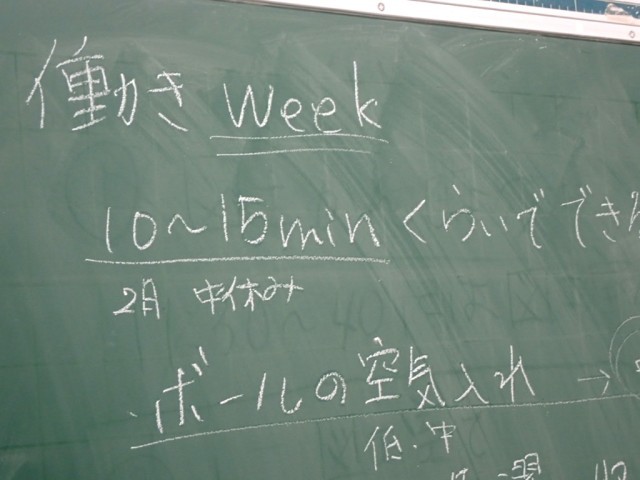 働き week
10～15min くらいで でき
2月 中休み
・ボールの空気入れ →
低・中